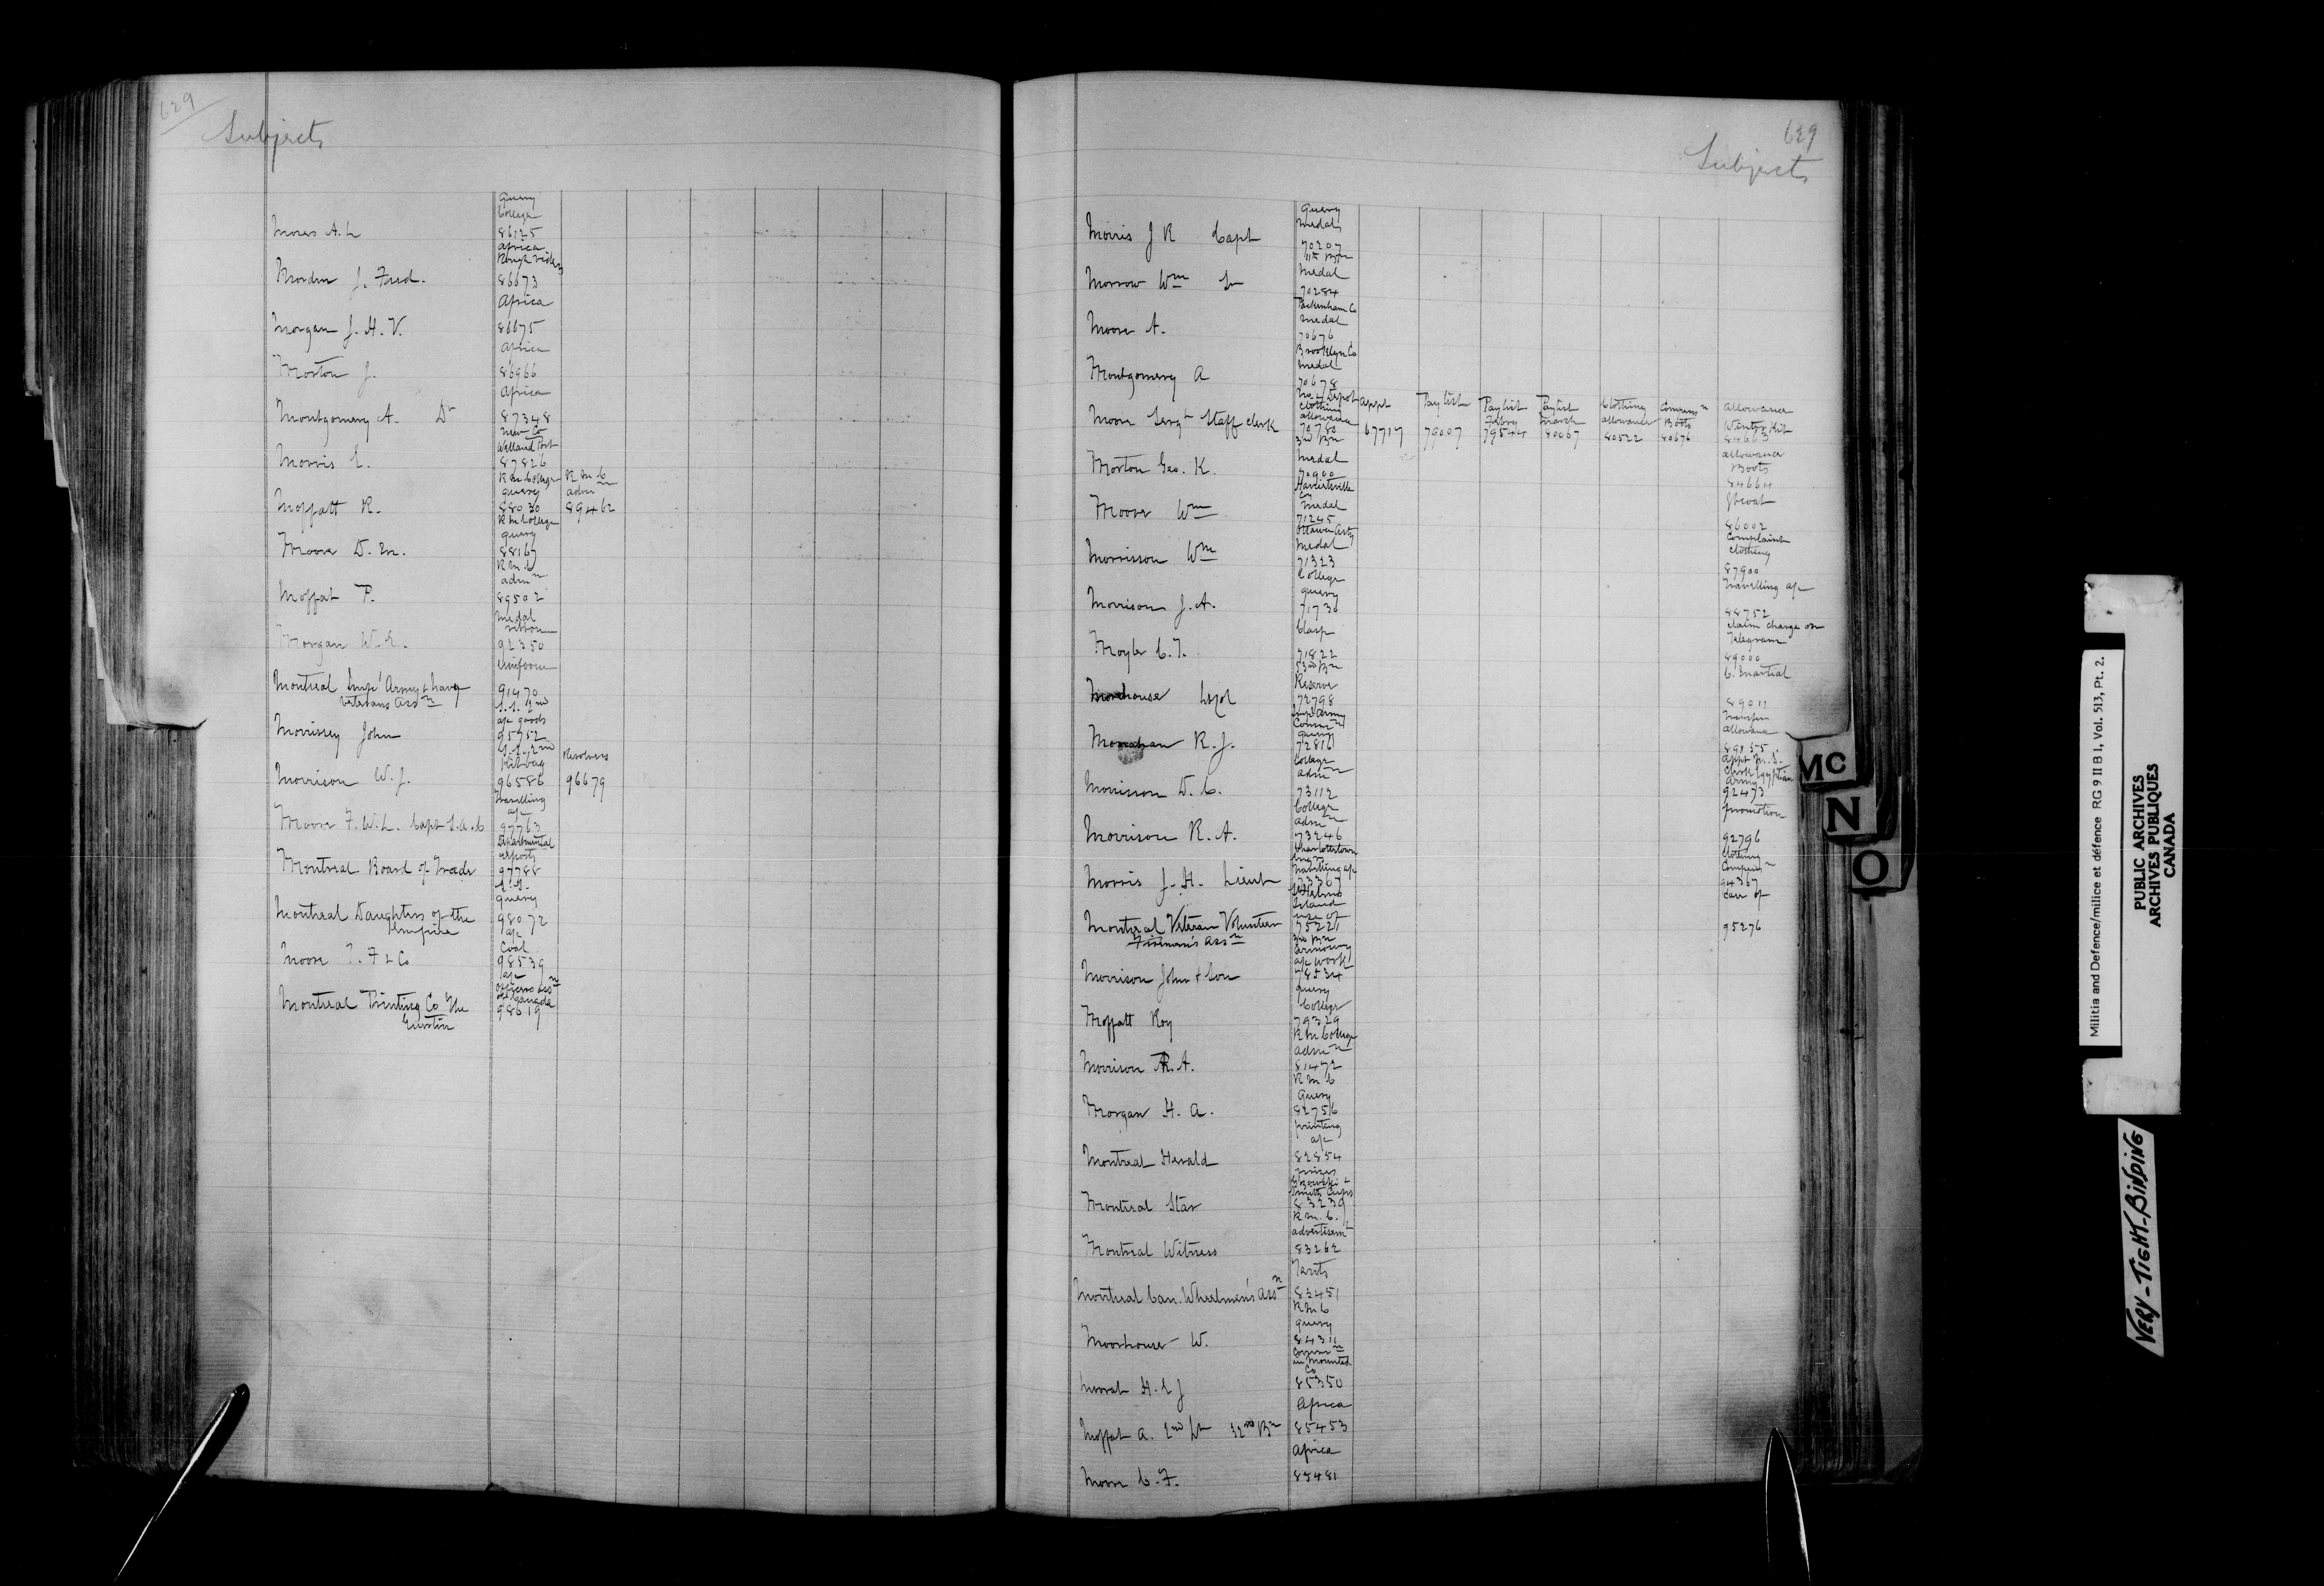 629
Subjects
Query
College
Moses A. L 86125
Africa
Rough riders
Morden J. Fred. 86673
Africa
Morgan J. H. V. 86675
Africa
Morton J. 86966
Africa
Montgomery A. Dr 87348
New Co
Welland Port
Morris E. 87826
R M College R M C
query admn
Moffatt R. 88030 89462
R M College
query
Moore D. M. 88167
R M C
admn
Moffat P. 89502
Medal
ribbon
Morgan W. E. 92350
Uniform
Montreal Impl Army & Navy 91470
Veterans Assn
a/c goods
Morrissey John 95952
Kitbag Revolvers
Morrison W. J. 96586 96679
Travelling
a/c
Moore F. W. L. Capt 97763
Departmental
reports
Montreal Board of Trade 97788
query
Montreal Daughters of the 98072
Empire
a/c
Coal
Moore T. F & Co 98539
a/c
Officers Assn
of Canada
Montreal Printing Co The 98619
629
Subjects
Query
Medals
Morris J R Capt 70207
11th Bn
Medal
Morrow Wm Lt 70284
Packenham Co
Medal
Moore A. 70676
Brooklyn Co
Medal
Montgomery A 70678
No 4 Depot appt Pay list Pay list Pay list Clothing Compensn allowance
Clothing Febry March allowance Boots Winter Kit
allowance
Moore Sergt Staff clerk 70780 67717 79007 79544 80067 80522 80676 84663
3rd Bn
Medal
allowance
Boots
Morton Geo. K. 70900
84664
Harrietsville
Co
Medal
Gt coat
Moore Wm 71245
86002
Ottawa Arty
Medal
Complaint
clothing
Morrison Wm 71323
87900
College
query
Travelling a/c
Morrison J. A. 71730
88752
Clasp
claim charge on
Telegram
Moyle C. T. 71822
89000
53rd Bn
Reserve
C. Martial
Morehouse 72798
89011
Impl Army
Commn
query
Transfer
allowance
Monahan R. J. 72816
College
admn
Appt
Clerk Egyptian
Army
Morrison D. C. 73112
92473
College
admn
promotion
Morrison R. A. 73246
92796
Charlottetown
Engrs
Travelling a/c
Clothing
Compensn
Morris J. H. Lieut 73367
94367
St Helens
Island
use of
Care of
Montreal Veteran Volunteer 75221
95276
Firemen's Assn
3rd Bn
armoury
a/c work
Morrison John & Son 78534
query
College
Moffatt Roy 79329
R M College
admn
Morrison R. A. 81472
R M C
Query
Morgan H. A. 82756
printing
a/c
Montreal Herald 82854
prizes
Smith Cups
Montreal Star 83239
R. M. C.
advertisemt
Montreal Witness 83262
Tents
Montreal Can. Wheelmen's Assn 83451
R M C
query
Moorhouse W. 84311
Commn
in Mounted
Co
Morrat H. E J 85350
Africa
Moffat A. 2nd Lt 32nd Bn 85453
Africa
Moore C. F. 85481
MC
N
O
Militia and Defence/milice et défence RG 9 II B 1, Vol. 513, Pt. 2.
PUBLIC ARCHIVES
ARCHIVES PUBLIQUES
CANADA
VERY-TIGHT-BINDING